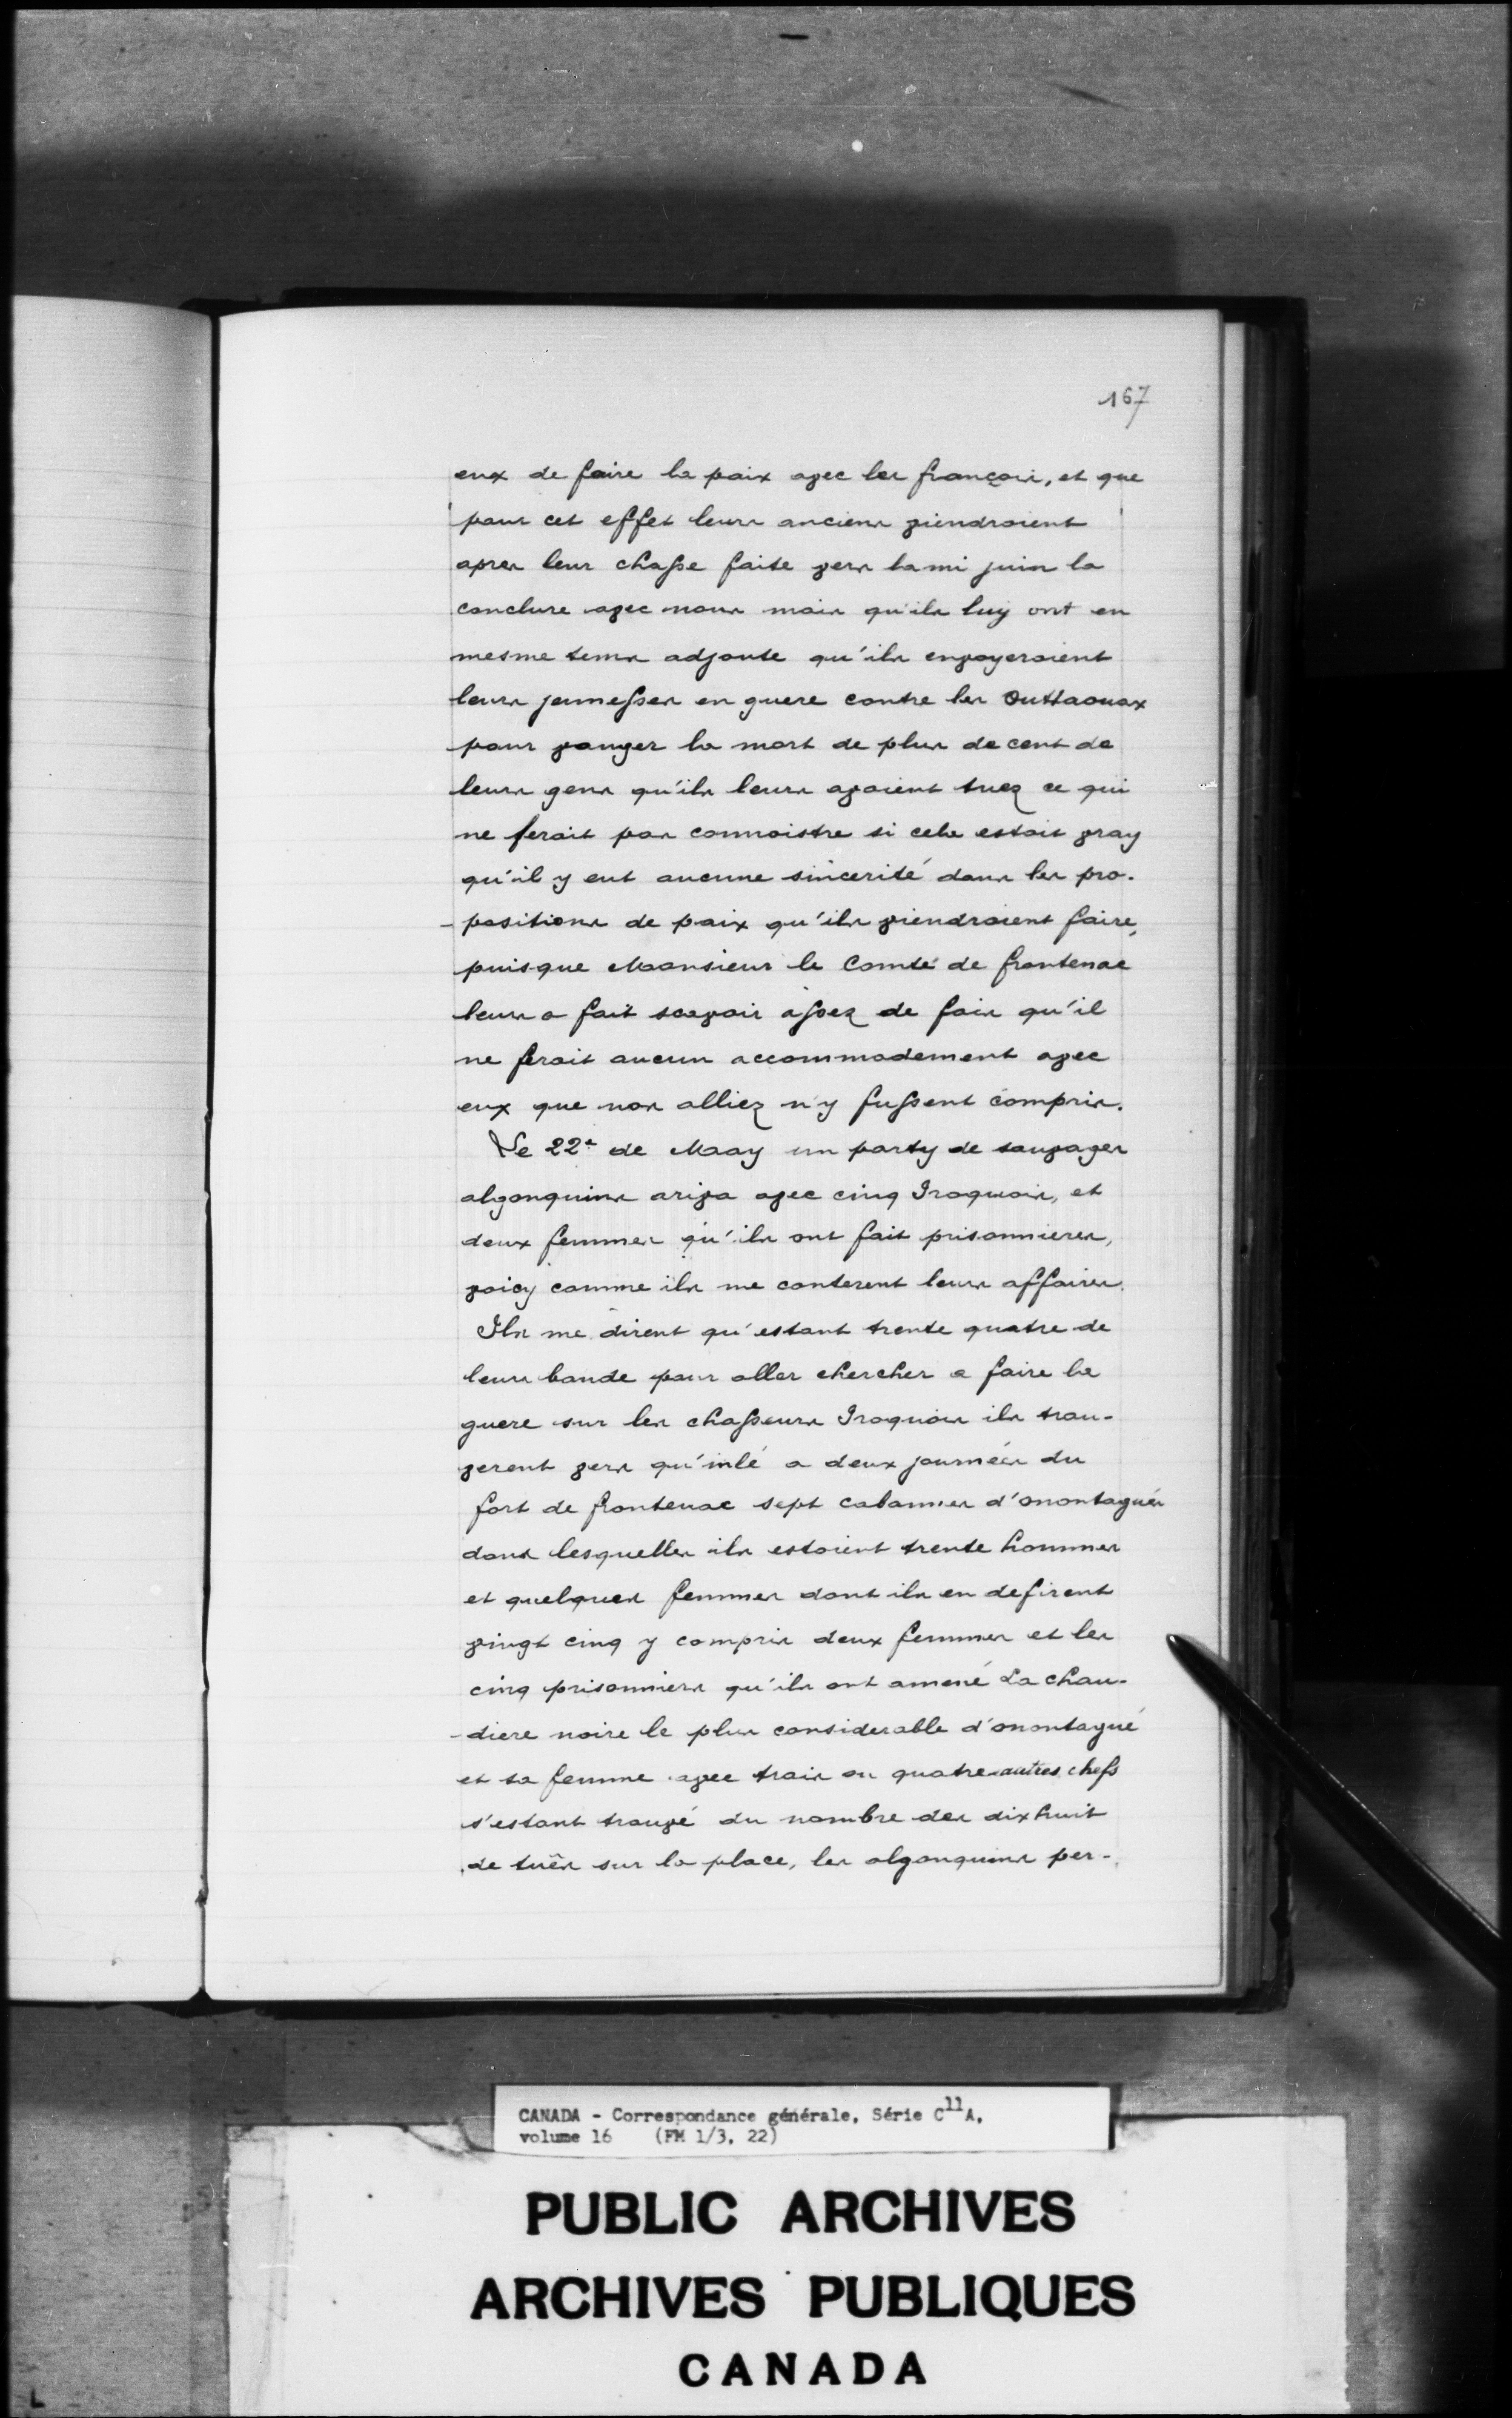 167
eux de faire la paix avec les françois, et que
pour cet effet leurs anciens viendroient
apres leur chasse faite vers la mi juin la
conclure avec nous mais qu'ils luy ont en
mesme tems adjouté qu'ils envoyeroient
leurs jeunesses en guere contre les Outtaouax
pour vanger la mort de plus de cent de
leurs gens qu'ils leurs avoient tuez ce qui
ne feroit pas connoistre si cela estoit vray
qu'il y eut aucune sincerité dans les pro-
-positions de paix qu'ils viendroient faire,
puisque Monsieur le Comte de frontenac
leurs a fait scavoir assez de fois qu'il
ne feroit aucun accommodement avec
eux que nos alliez n'y fussent compris.
Le 22e de May un party de sauvages
algonquins ariva avec cinq Iroquois, et
deux femmes qu'ils ont fait prisonnieres,
voicy comme ils me conterent leurs affaires.
Ils me dirent qu'estant trente quatre de
leurs bande pour aller chercher a faire la
guere sur les chasseurs Iroquois ils trou-
verent vers qu'inté a deux journées du
fort de frontenac sept cabannes d'onontagués
dans lesquelles ils estoient trente hommes
et quelques femmes dont ils en defirent
vingt cinq y compris deux femmes et les
cinq prisonniers qu'ils ont amené La chau-
-diere noire le plus considerable d'onontagué
et sa femme avec trois ou quatre autres chefs
s'estant trouvé du nombre des dix huit
de tuës sur la place, les algonquins per-
CANADA - Correspondance générale, Série C11A,
volume 16 (FM 1/3, 22)
PUBLIC ARCHIVES
ARCHIVES PUBLIQUES
CANADA